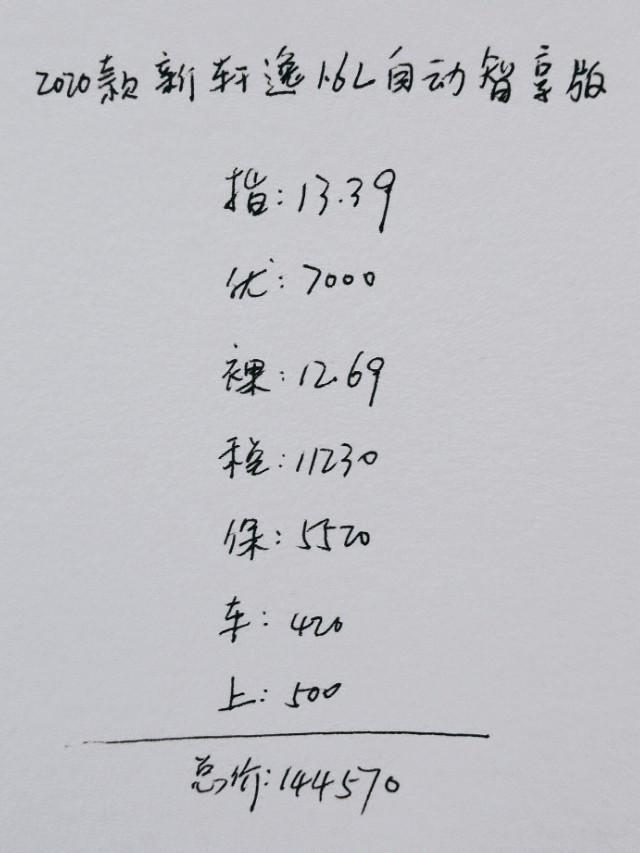 2020款新轩逸1.6L自动智享版
指:13.39
优:7000
裸:12.69
税:11230
保:5520
车:420
上:500
总价:144570